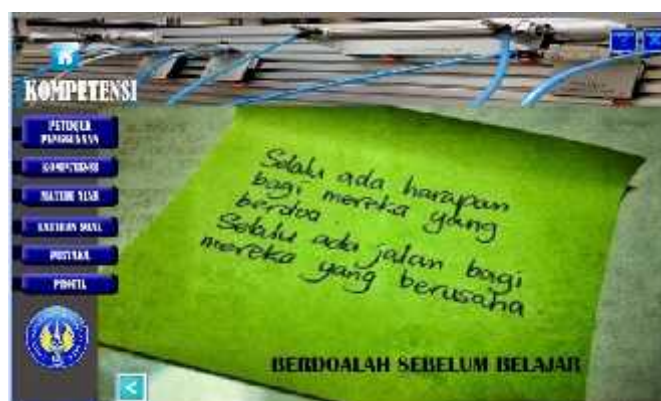 KOMPETENSI
PETUNJUK
PENGGUNAAN
KOMPETENSI
MATERI AJAR
LATIHAN SOAL
PUSTAKA
PROFIL
Selalu ada harapan
bagi mereka yang
berdoa
Selalu ada jalan bagi
mereka yang berusaha
BERDOALAH SEBELUM BELAJAR